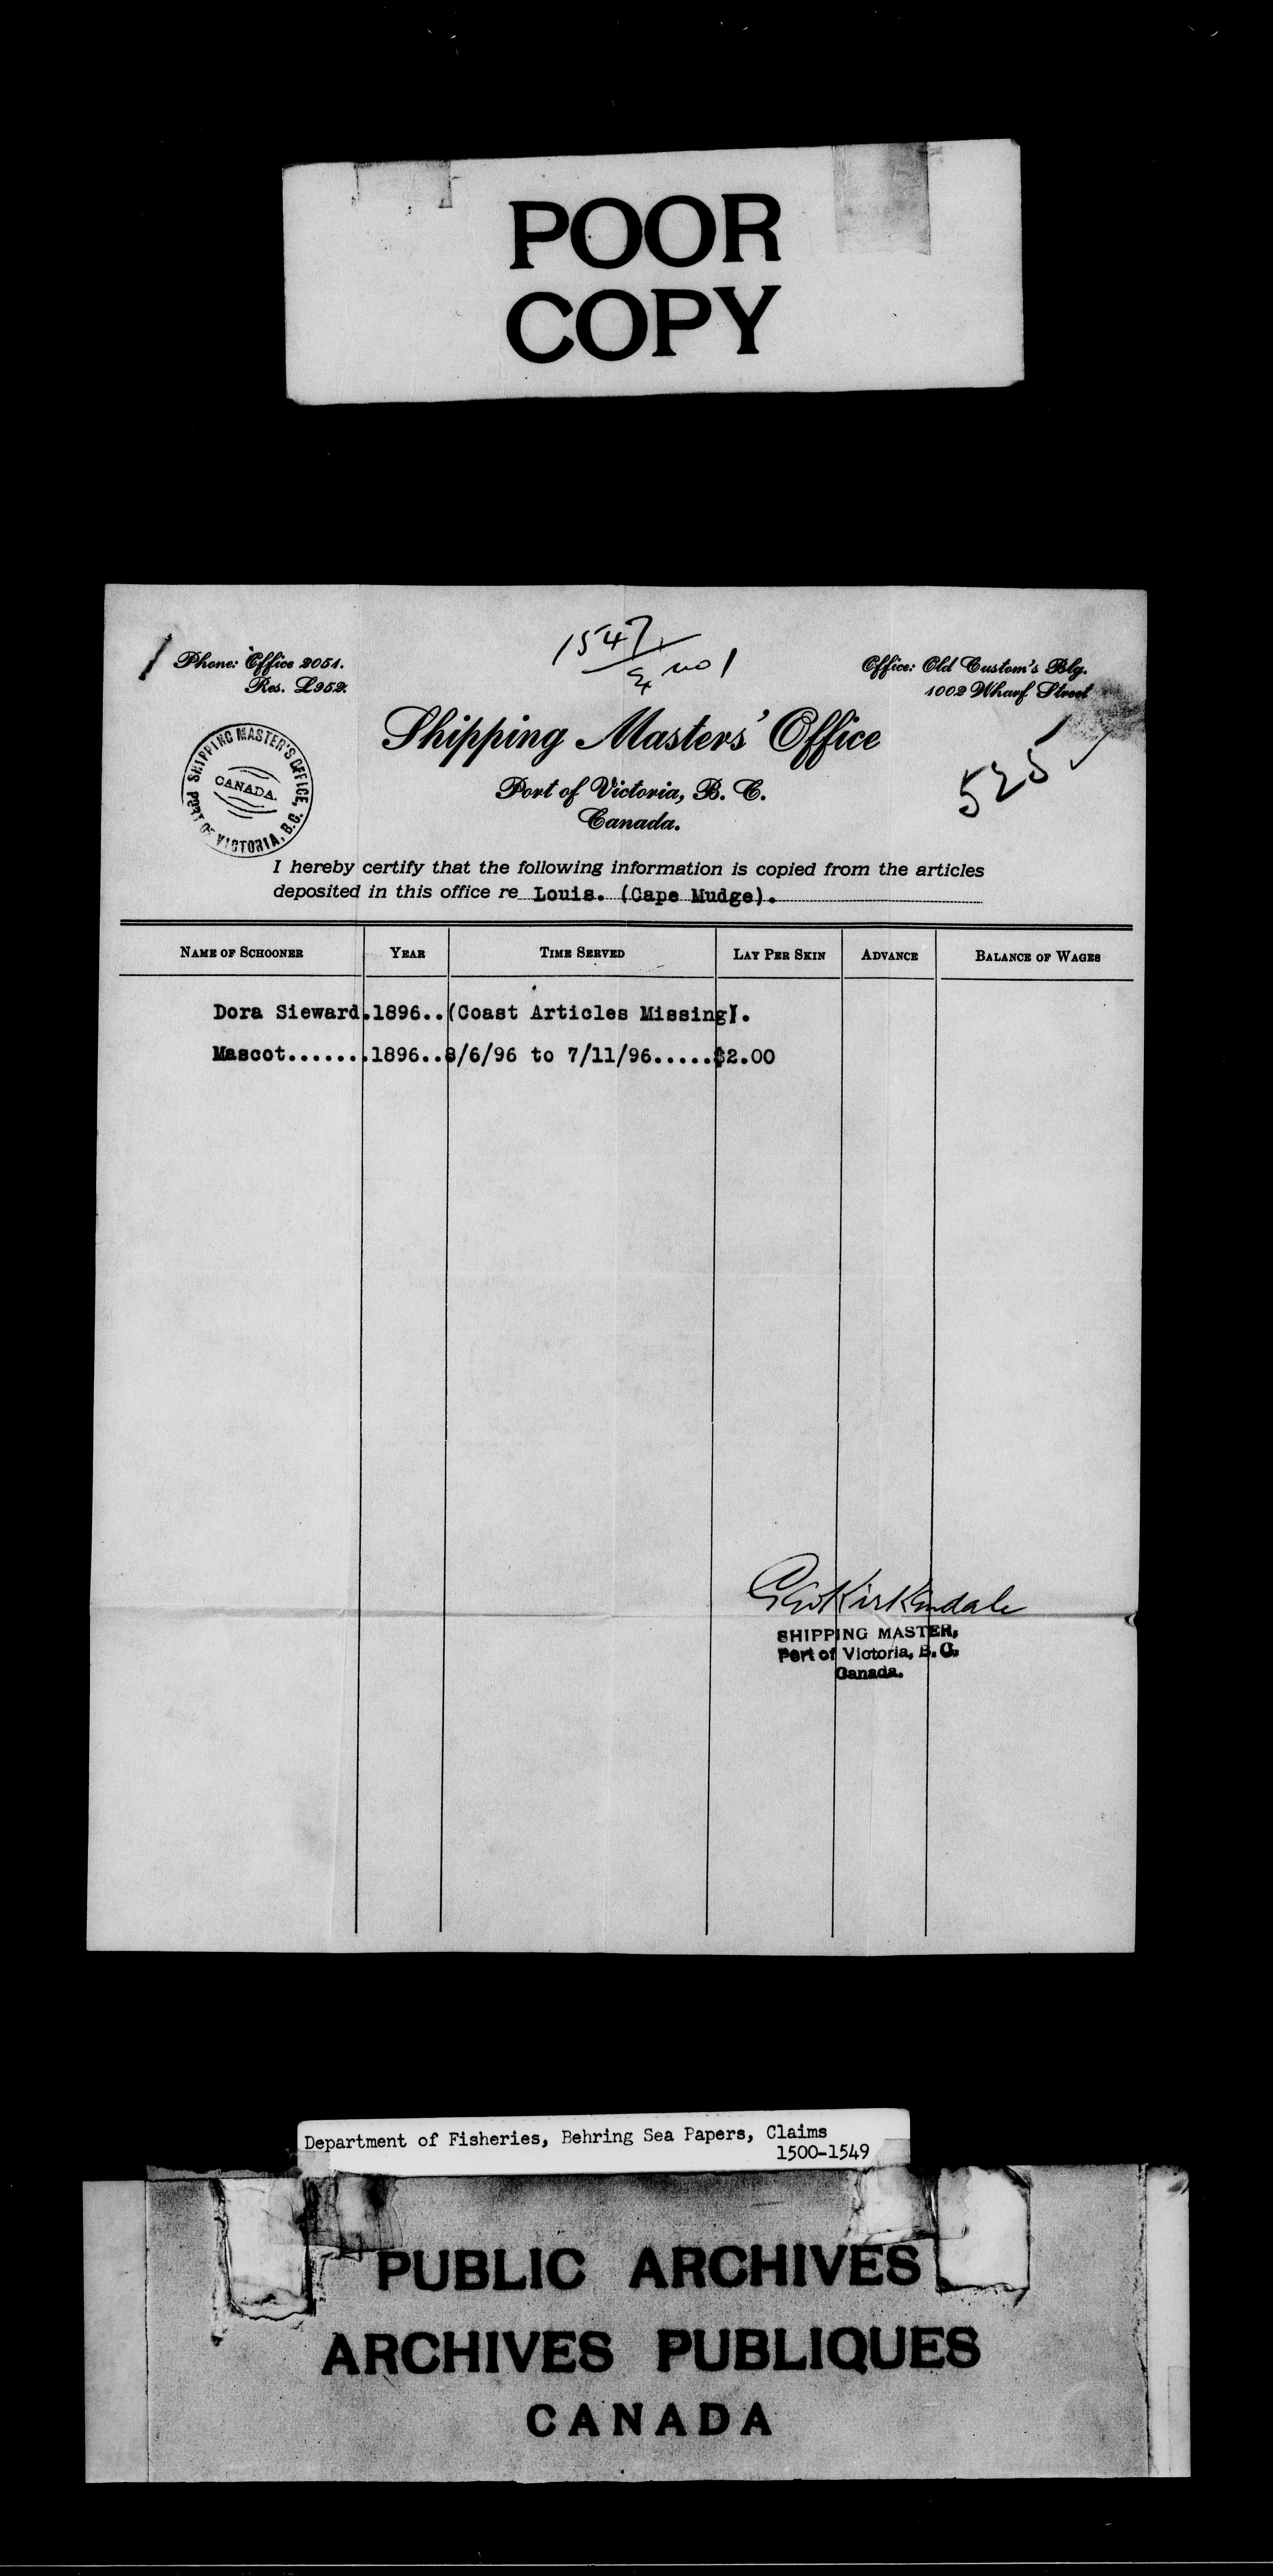 POOR
COPY
1547
no 1
Phone: Office 2051.
Res. L952.
Office: Old Custom's Blg.
1002 Wharf Street
525
Shipping Masters' Office
Port of Victoria, B. C.
Canada.
SHIPPING MASTER'S OFFICE,
CANADA.
PORT OF VICTORIA, B.C.
I hereby certify that the following information is copied from the articles
deposited in this office re Louis. (Cape Mudge).
NAME OF SCHOONER YEAR TIME SERVED LAY PER SKIN ADVANCE BALANCE OF WAGES
Dora Sieward.1896..(Coast Articles Missing).
Mascot.......1896..8/6/96 to 7/11/96.....$2.00
Kirkendale
SHIPPING MASTER,
Port of Victoria, B. C.
Canada.
Department of Fisheries, Behring Sea Papers, Claims
1500-1549
PUBLIC ARCHIVES
ARCHIVES PUBLIQUES
CANADA